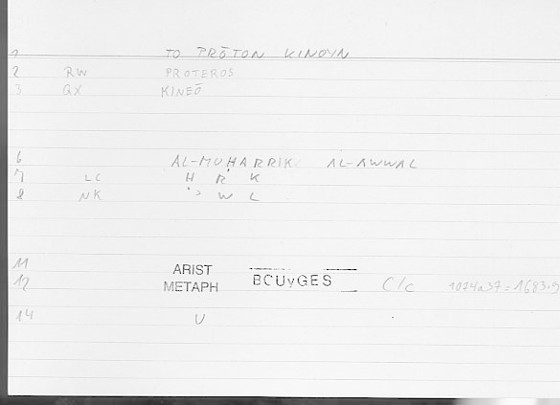 1 TO PRŌTON KINOYN
2 RW PROTEROS
3 QX KINEŌ
6 AL-MUHARRIK AL-AWWAL
7 LC Ḥ R K
8 NK ʾ W L
11 ARIST
12 METAPH BOUyGES C/c
14 U